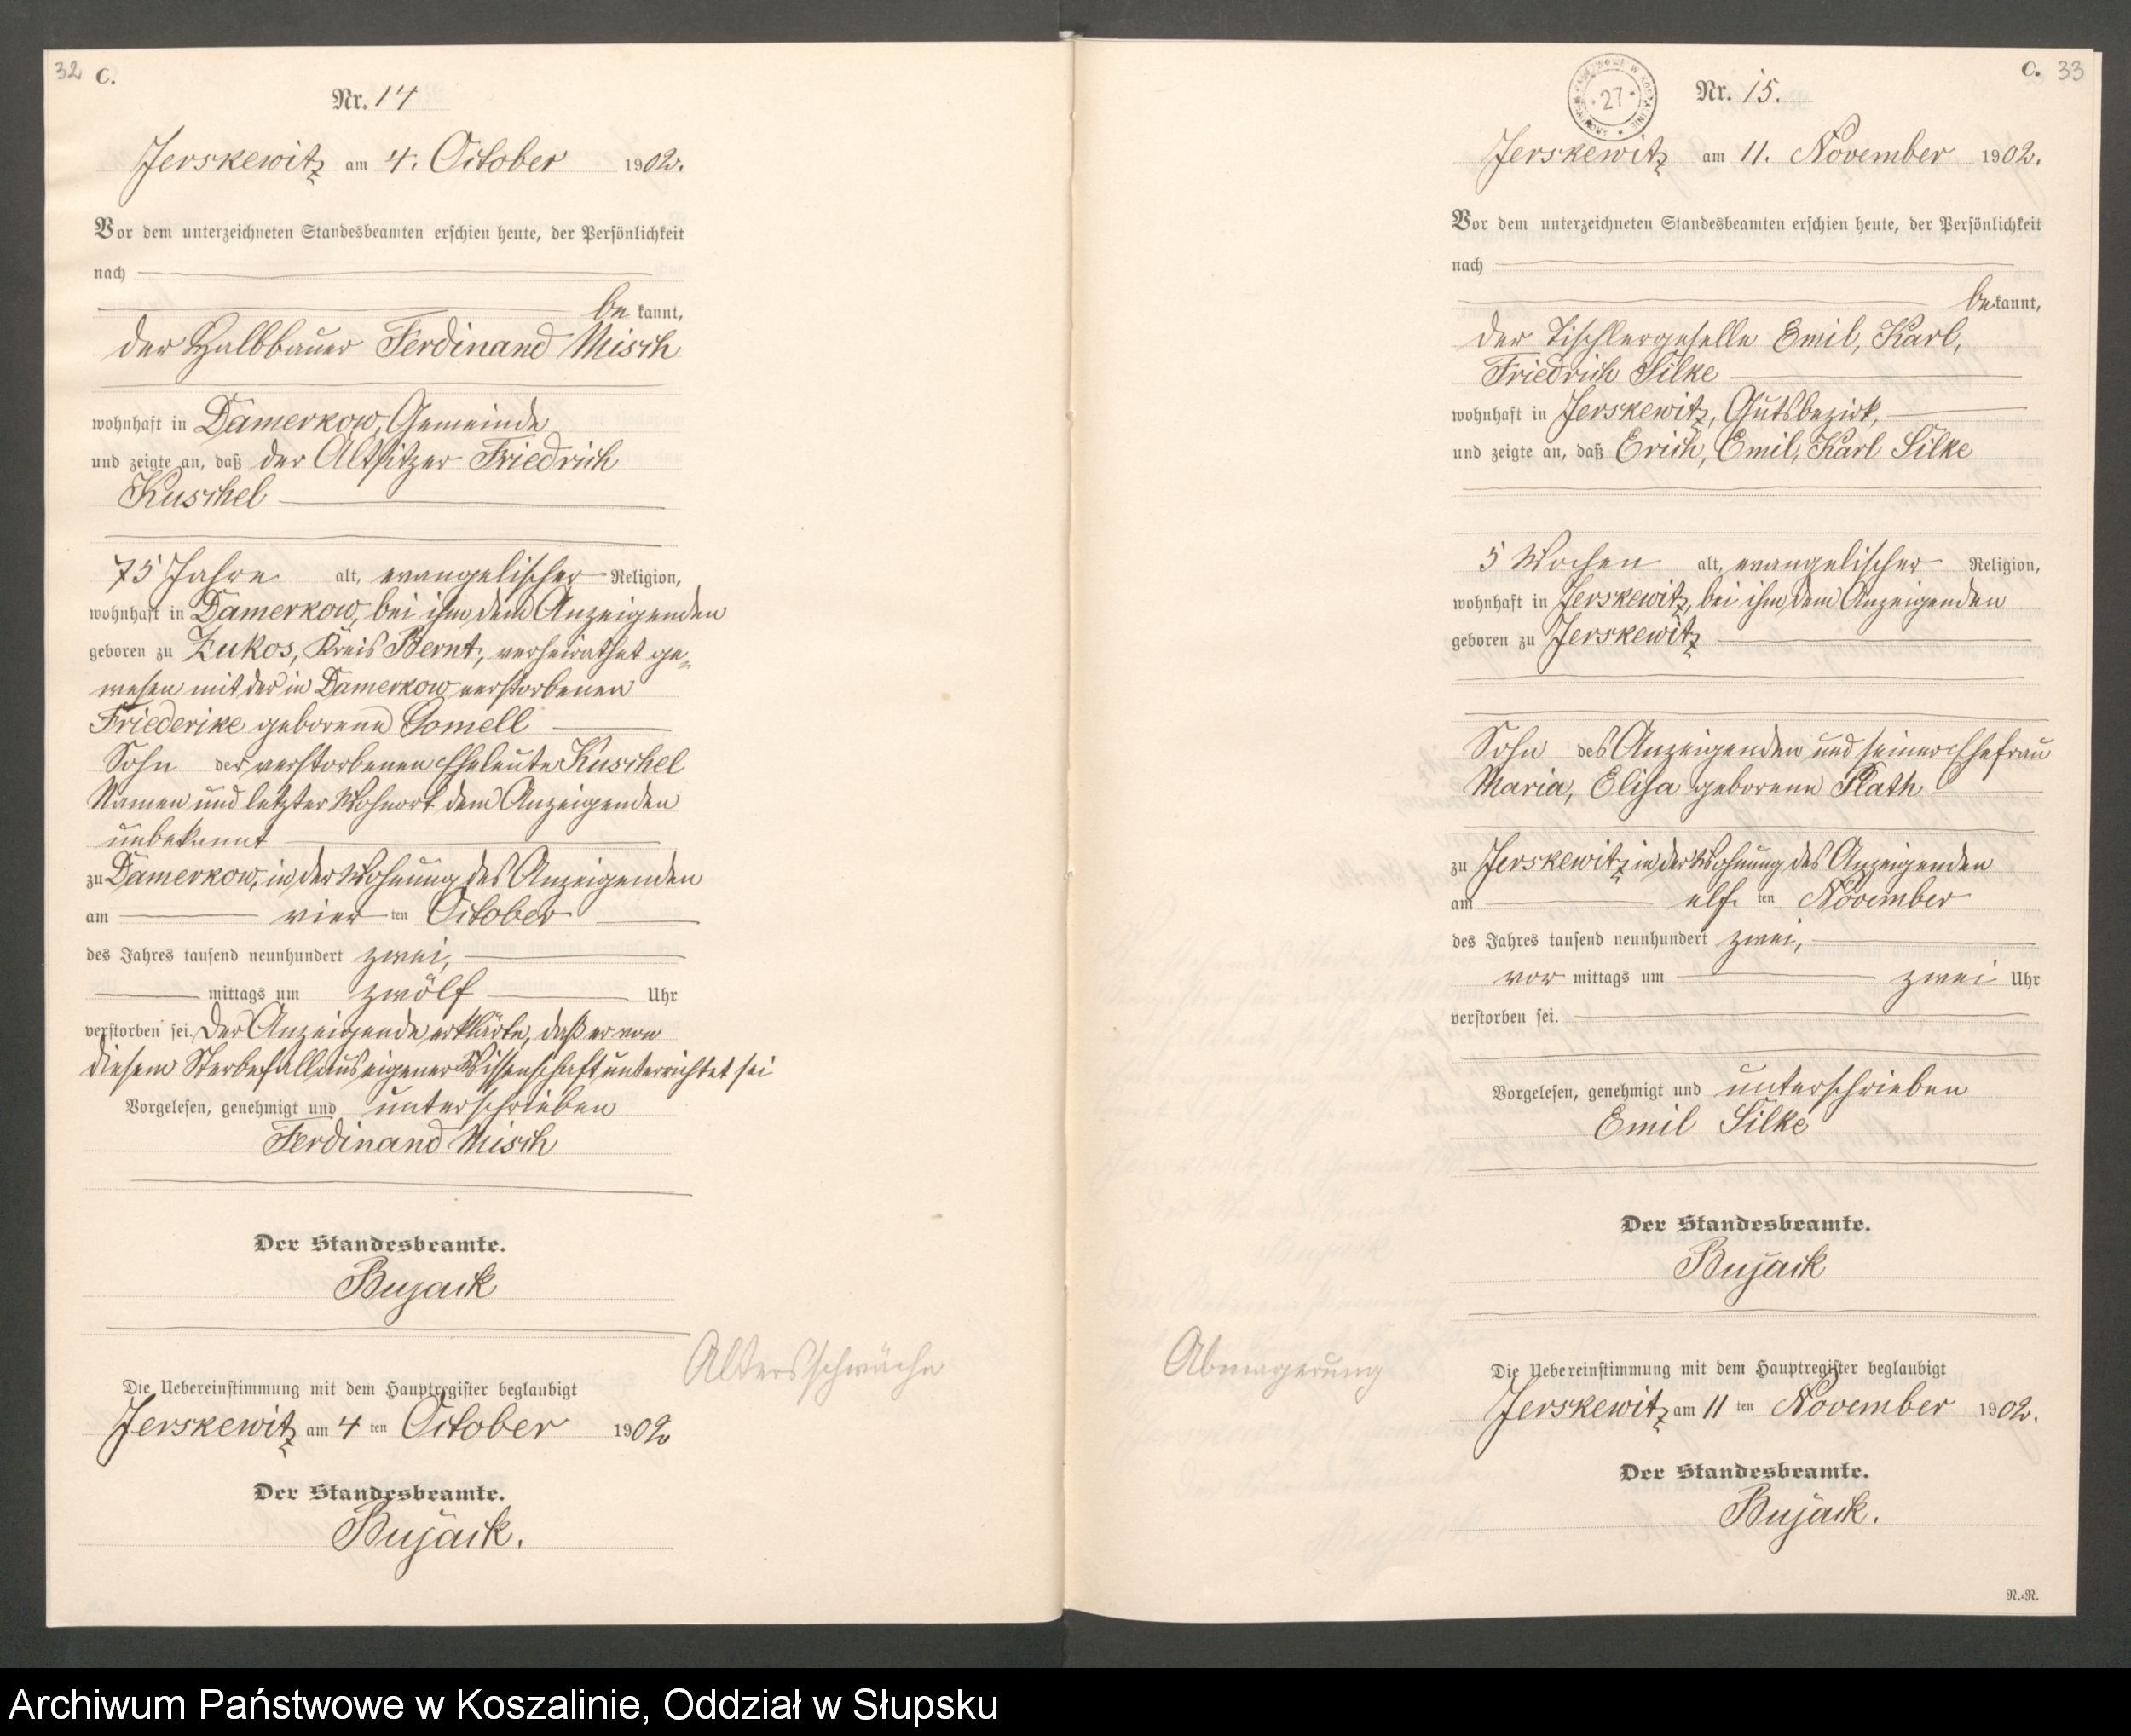 32 C.
Nr. 14
Jerskewitz am 4. October 1902.
Vor dem unterzeichneten Standesbeamten erschien heute, der Persönlichkeit
nach
be kannt,
der Halbbauer Ferdinand Misch
wohnhaft in Damerkow, Gemeinde
und zeigte an, daß der Altsitzer Friedrich
Kuschel
75 Jahre alt, evangelischer Religion,
wohnhaft in Damerkow, bei ihm dem Anzeigenden
geboren zu Zukos, Kreis Bernt, verheirathet ge-
wesen mit der in Damerkow verstorbenen
Friederike geborene Gomell
Sohn der verstorbenen Eheleute Kuschel
Namen und letzter Wohnort dem Anzeigenden
unbekannt
zu Damerkow, in der Wohnung des Anzeigenden
am vier ten October
des Jahres tausend neunhundert zwei,
mittags um zwölf Uhr
verstorben sei. Der Anzeigende erklärte, daß er von
diesem Sterbefall aus eigener Wissenschaft unterrichtet sei
Vorgelesen, genehmigt und unterschrieben
Ferdinand Misch
Der Standesbeamte.
Bujack
Altersschwäche
Die Uebereinstimmung mit dem Hauptregister beglaubigt
Jerskewitz am 4 ten October 1902
Der Standesbeamte.
Bujack.
C. 33
27
Nr. 15.
Jerskewitz am 11. November 1902.
Vor dem unterzeichneten Standesbeamten erschien heute, der Persönlichkeit
nach
be kannt,
der Tischlergeselle Emil, Karl,
Friedrich Silke
wohnhaft in Jerskewitz, Gutsbezirk,
und zeigte an, daß Erich, Emil, Karl Silke
5 Wochen alt, evangelischer Religion,
wohnhaft in Jerskewitz, bei ihm dem Anzeigenden
geboren zu Jerskewitz
Sohn des Anzeigenden und seiner Ehefrau
Maria, Elisa geborene Plath
zu Jerskewitz in der Wohnung des Anzeigenden
am elf ten November
des Jahres tausend neunhundert zwei,
vor mittags um zwei Uhr
verstorben sei.
Vorgelesen, genehmigt und unterschrieben
Emil Silke
Der Standesbeamte.
Bujack
Abmagerung
Die Uebereinstimmung mit dem Hauptregister beglaubigt
Jerskewitz am 11 ten November 1902.
Der Standesbeamte.
Bujack.
N.=N.
Archiwum Państwowe w Koszalinie, Oddział w Słupsku